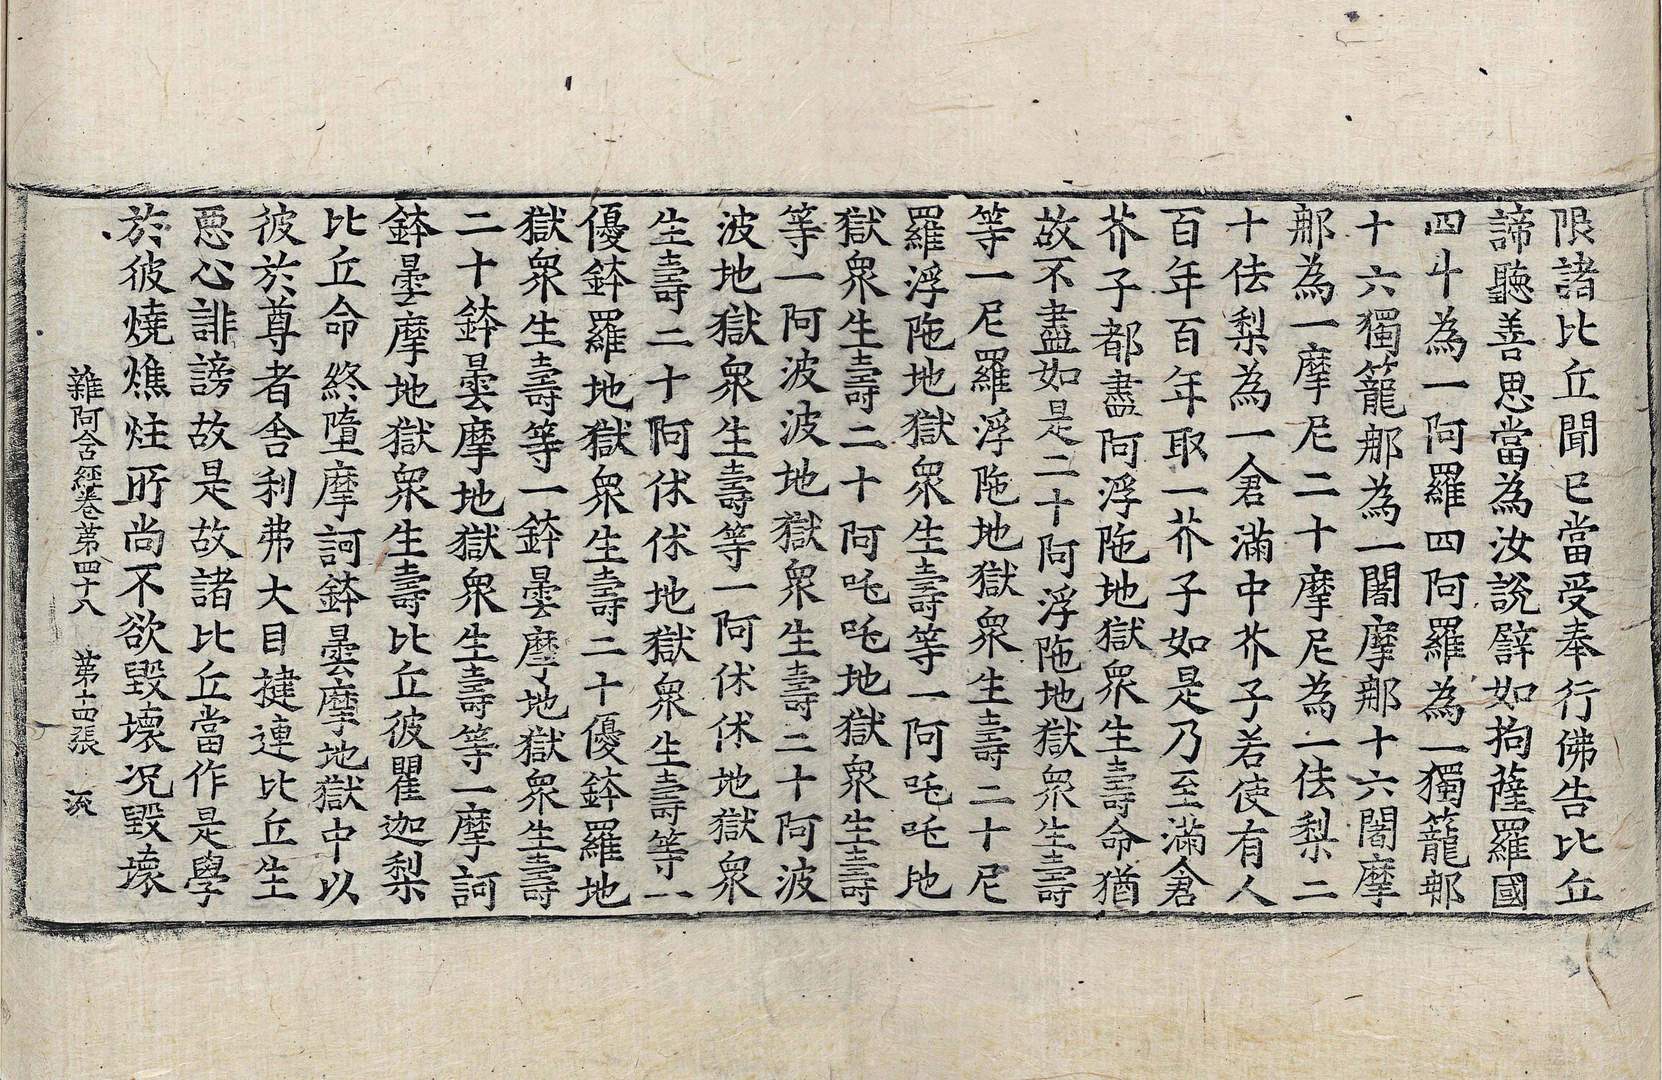 限諸比丘聞已當受奉行佛告比丘
諦聽善思當為汝說譬如拘薩羅國
四斗為一阿羅四阿羅為一獨籠郍
十六獨籠郍為一闍摩郍十六闍摩
郍為一摩尼二十摩尼為一佉梨二
十佉梨為一倉滿中芥子若使有人
百年百年取一芥子如是乃至滿倉
芥子都盡阿浮陁地獄衆生壽命猶
故不盡如是二十阿浮陁地獄衆生壽
等一尼羅浮陁地獄衆生壽二十尼
羅浮陁地獄衆生壽等一阿吒吒地
獄衆生壽二十阿吒吒地獄衆生壽
等一阿波波地獄衆生壽二十阿波
波地獄衆生壽等一阿休休地獄衆
生壽二十阿休休地獄衆生壽等一
優鉢羅地獄衆生壽二十優鉢羅地
獄衆生壽等一鉢曇摩地獄衆生壽
二十鉢曇摩地獄衆生壽等一摩訶
鉢曇摩地獄衆生壽比丘彼瞿迦梨
比丘命終墮摩訶鉢曇摩地獄中以
彼於尊者舍利弗大目揵連比丘生
惡心誹謗故是故諸比丘當作是學
於彼燒燋炷所尚不欲毀壞况毀壞
雜阿含經卷第四十八 第十四張 流